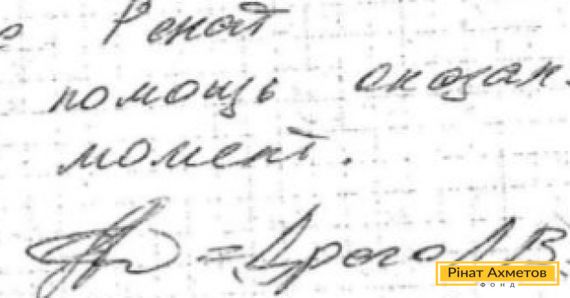 Ренат
помощь оказан
момент.
Рінат Ахметов
ФОНД